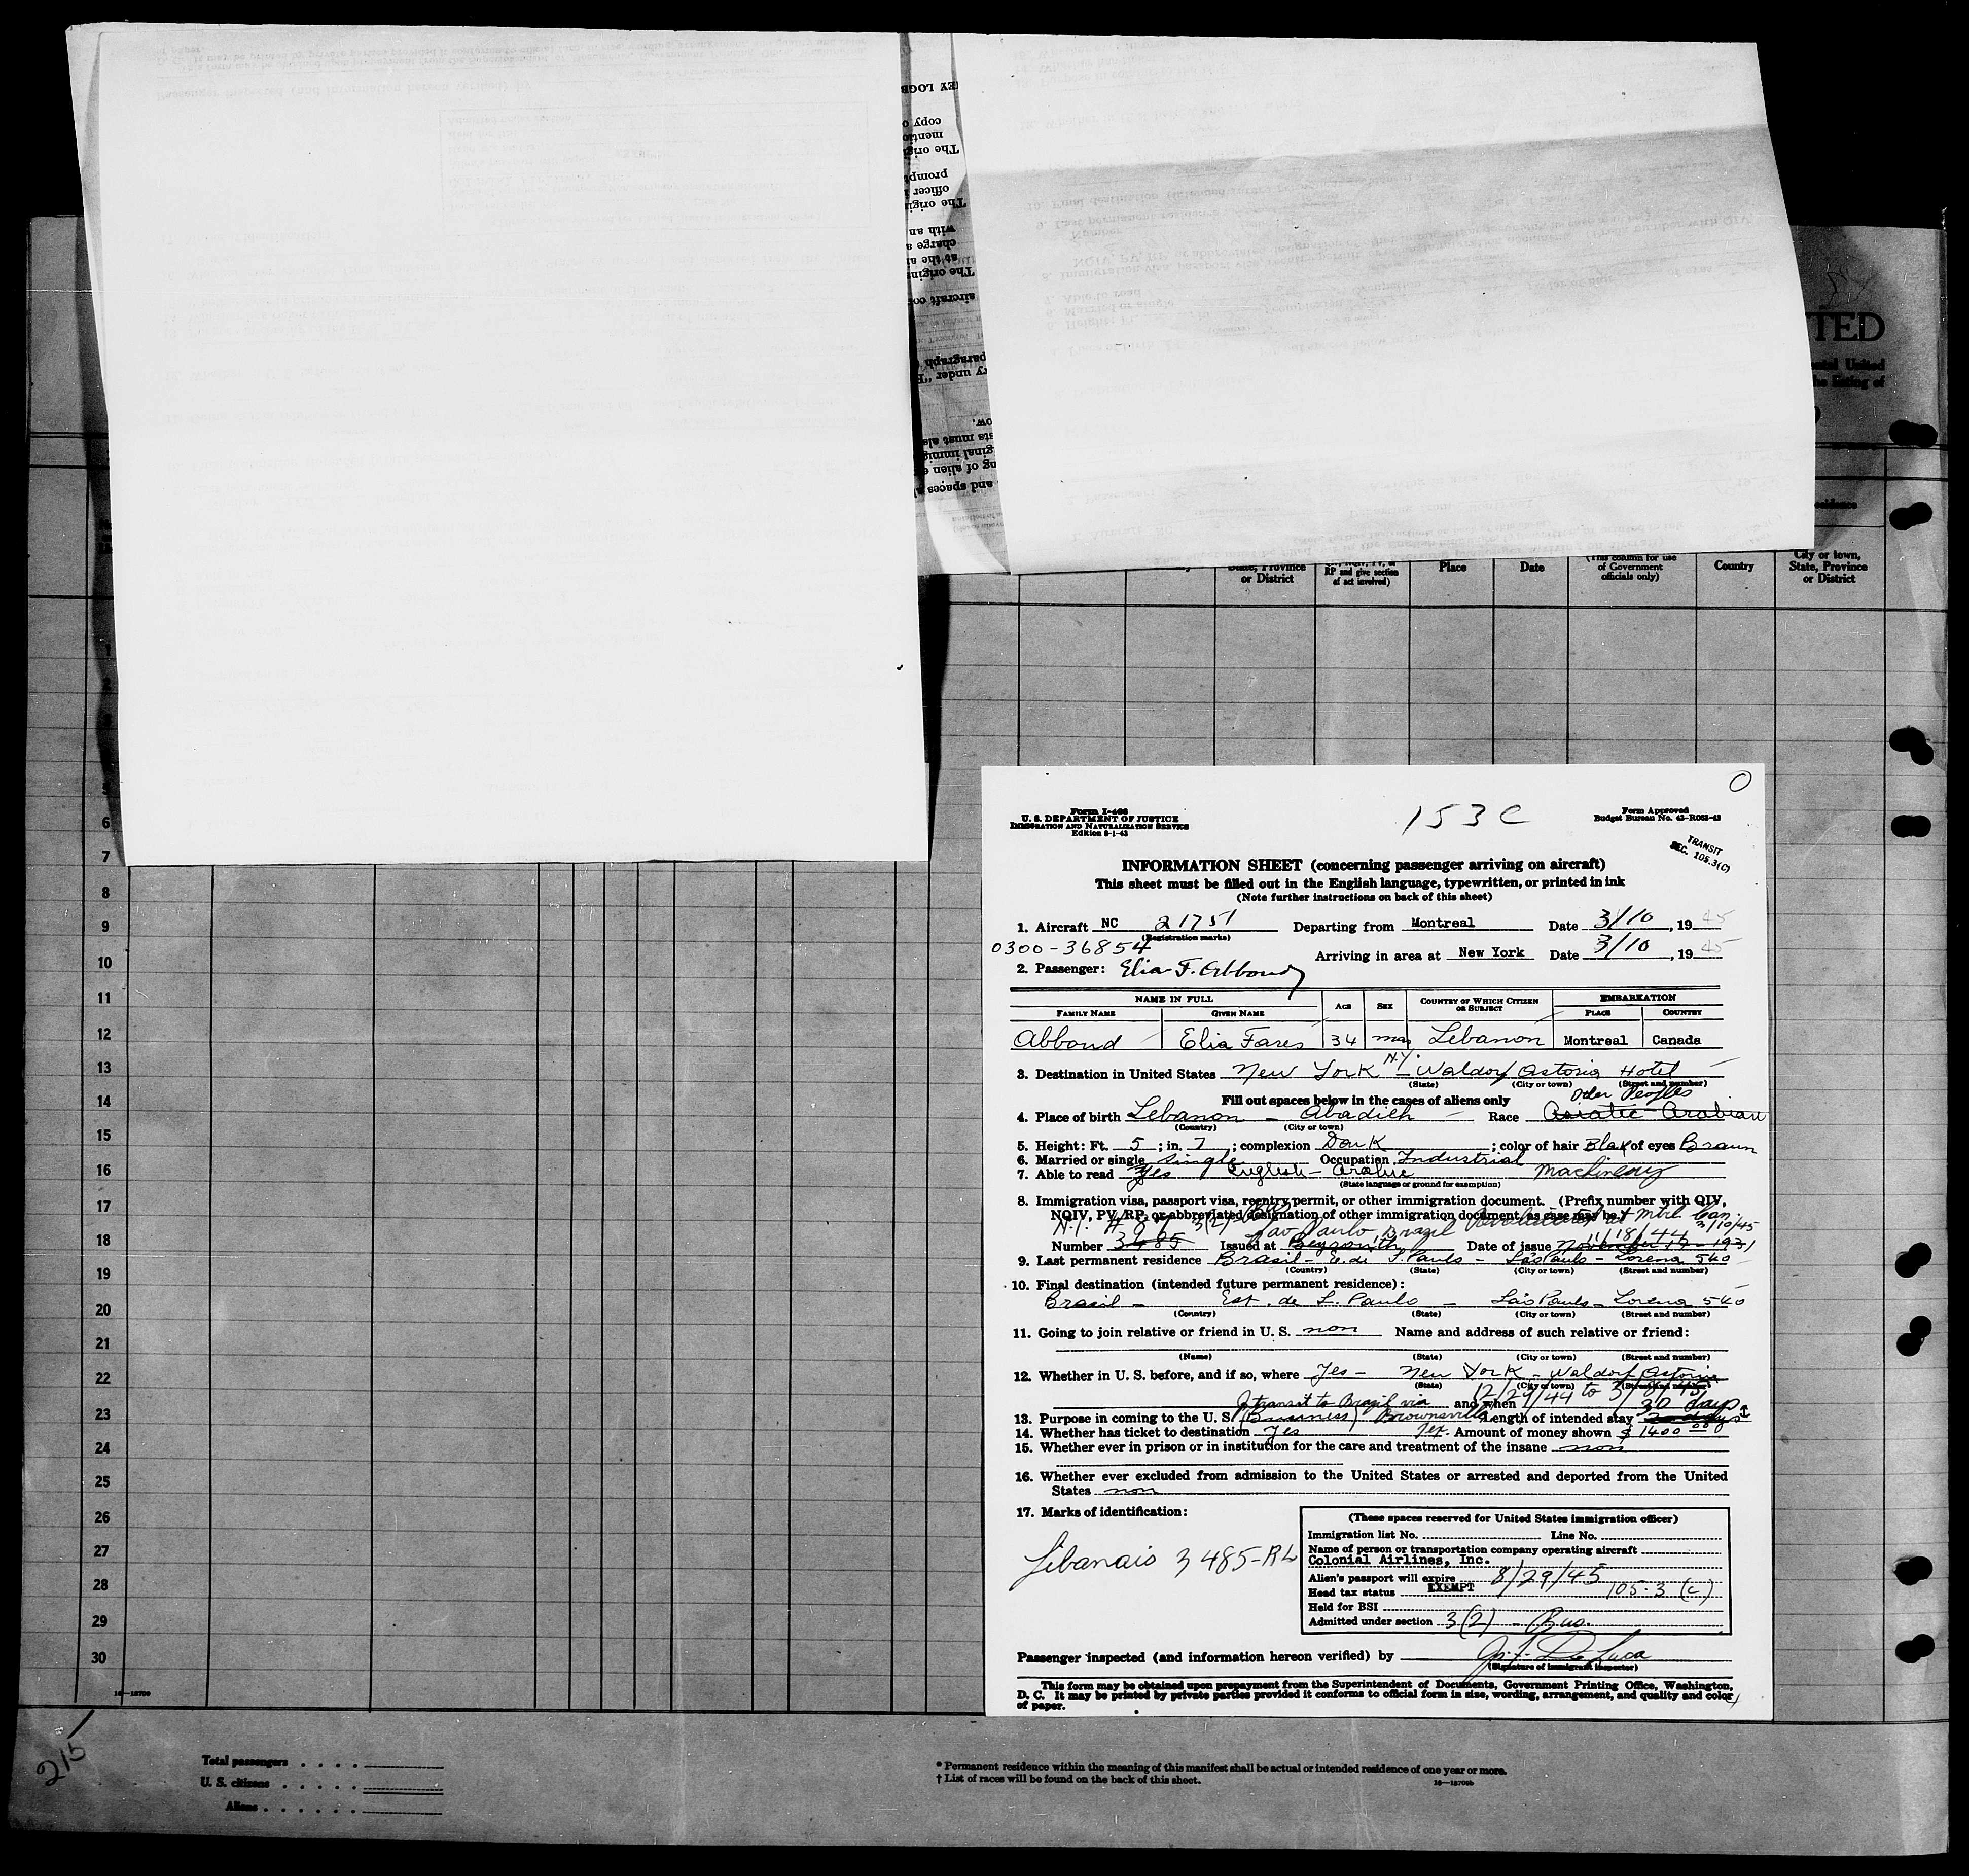 EY LOGB
copy o
mentio
The orig
prompt
officer
The orig
with an
charge a
at the ai
The origin
aircraft co
paragraph
ry under "
ow.
sts must als
ginal immig
ng of alien e
and spaces
TED
ental United
the listing of
State, Province
or District
RP and give section
of act involved)
Place
Date
(This column for use
of Government
officials only)
Country
City or town,
State, Province
or District
6
7
8
9
10
11
12
13
14
15
16
17
18
19
20
21
22
23
24
25
26
27
28
29
30
16—18709
215
Total passengers . . . .
U. S. citizens . . . . .
Aliens . . . . . .
* Permanent residence within the meaning of this manifest shall be actual or intended residence of one year or more.
† List of races will be found on the back of this sheet.
16—18709b
Form I-466
U. S. DEPARTMENT OF JUSTICE
IMMIGRATION AND NATURALIZATION SERVICE
Edition 8-1-43
153 C
Form Approved
Budget Bureau No. 43-R063-43
TRANSIT
SEC. 105.3(C)
INFORMATION SHEET (concerning passenger arriving on aircraft)
This sheet must be filled out in the English language, typewritten, or printed in ink
(Note further instructions on back of this sheet)
1. Aircraft NC 21751 Departing from Montreal Date 3/10, 1945
(Registration marks)
0300-36854
Arriving in area at New York Date 3/10, 1945
2. Passenger: Elia F. Abboud
NAME IN FULL AGE SEX COUNTRY OF WHICH CITIZEN OR SUBJECT EMBARKATION
FAMILY NAME GIVEN NAME PLACE COUNTRY
Abboud Elia Fares 34 mas Lebanon Montreal Canada
3. Destination in United States New York N.Y. - Waldorf Astoria Hotel
(State) (City or town) (Street and number)
Fill out spaces below in the cases of aliens only
Oder Peoples
4. Place of birth Lebanon - Abadieh - Race Asiatic Arabian
(Country) (City or town)
5. Height: Ft. 5; in. 7; complexion Dark; color of hair Blak of eyes Braun
6. Married or single Single Occupation Industrial
7. Able to read Yes English - Arabic Machinery
(State language or ground for exemption)
8. Immigration visa, passport visa, reentry permit, or other immigration document. (Prefix number with QIV,
NQIV, PV, RP, or abbreviated designation of other immigration document, as case may be.)
3(2) São Paulo, Brazil 3/10/45
11/18/44
Number 3485 Issued at Beyrouth Date of issue November 17 - 1931
9. Last permanent residence Brasil - E. de S. Paulo - São Paulo - Lorena 540
(Country) (State) (City or town) (Street and number)
10. Final destination (intended future permanent residence):
Brasil - Est. de S. Paulo - São Paulo - Lorena 540
(Country) (State) (City or town) (Street and number)
11. Going to join relative or friend in U. S. non Name and address of such relative or friend:
(Name) (State) (City or town) (Street and number)
12. Whether in U. S. before, and if so, where Yes - New York - Waldorf Astoria
(State) (City or town) (Street and number)
12/29/44 to
transit to Brazil via and when 30 days
13. Purpose in coming to the U. S. (Business) Brownsville Length of intended stay
14. Whether has ticket to destination Yes Tex. Amount of money shown $ 1400 00
15. Whether ever in prison or in institution for the care and treatment of the insane non
16. Whether ever excluded from admission to the United States or arrested and deported from the United
States non
17. Marks of identification:
Libanais 3485-RL
(These spaces reserved for United States immigration officer)
Immigration list No. Line No.
Name of person or transportation company operating aircraft
Colonial Airlines, Inc.
Alien's passport will expire 8/29/45
Head tax status EXEMPT 105.3 (c)
Held for BSI
Admitted under section 3(2) - Bus.
Passenger inspected (and information hereon verified) by
(Signature of immigrant inspector)
This form may be obtained upon prepayment from the Superintendent of Documents, Government Printing Office, Washington,
D. C. It may be printed by private parties provided it conforms to official form in size, wording, arrangement, and quality and color
of paper.